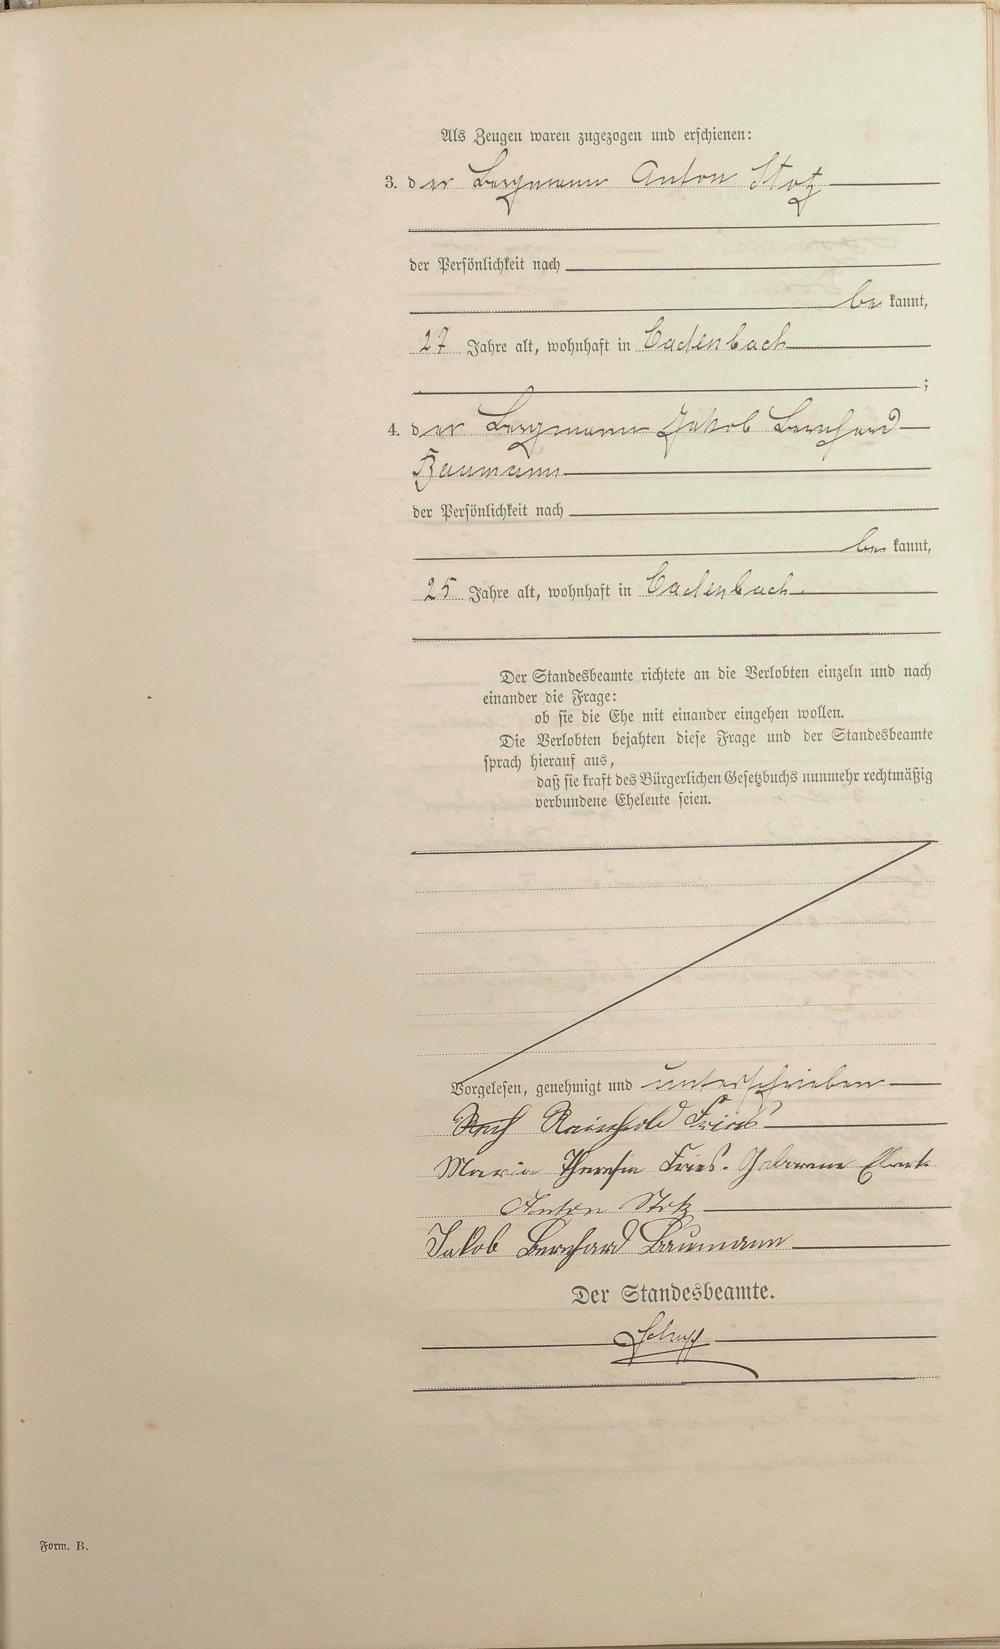 Als Zeugen waren zugezogen und erschienen:
3. der Bergmann Anton Stotz
der Persönlichkeit nach
be kannt,
27 Jahre alt, wohnhaft in Cadenbach
;
4. der Bergmann Jakob Bernhard
Baumann
der Persönlichkeit nach
be kannt,
25 Jahre alt, wohnhaft in Cadenbach.
Der Standesbeamte richtete an die Verlobten einzeln und nach
einander die Frage:
ob sie die Ehe mit einander eingehen wollen.
Die Verlobten bejahten diese Frage und der Standesbeamte
sprach hierauf aus,
daß sie kraft des Bürgerlichen Gesetzbuchs nunmehr rechtmäßig
verbundene Eheleute seien.
Vorgelesen, genehmigt und unterschrieben
Reinhold Fries
Maria Theresia Fries. Geborene
Anton Stotz
Jakob Bernhard Baumann
Der Standesbeamte.
Form. B.